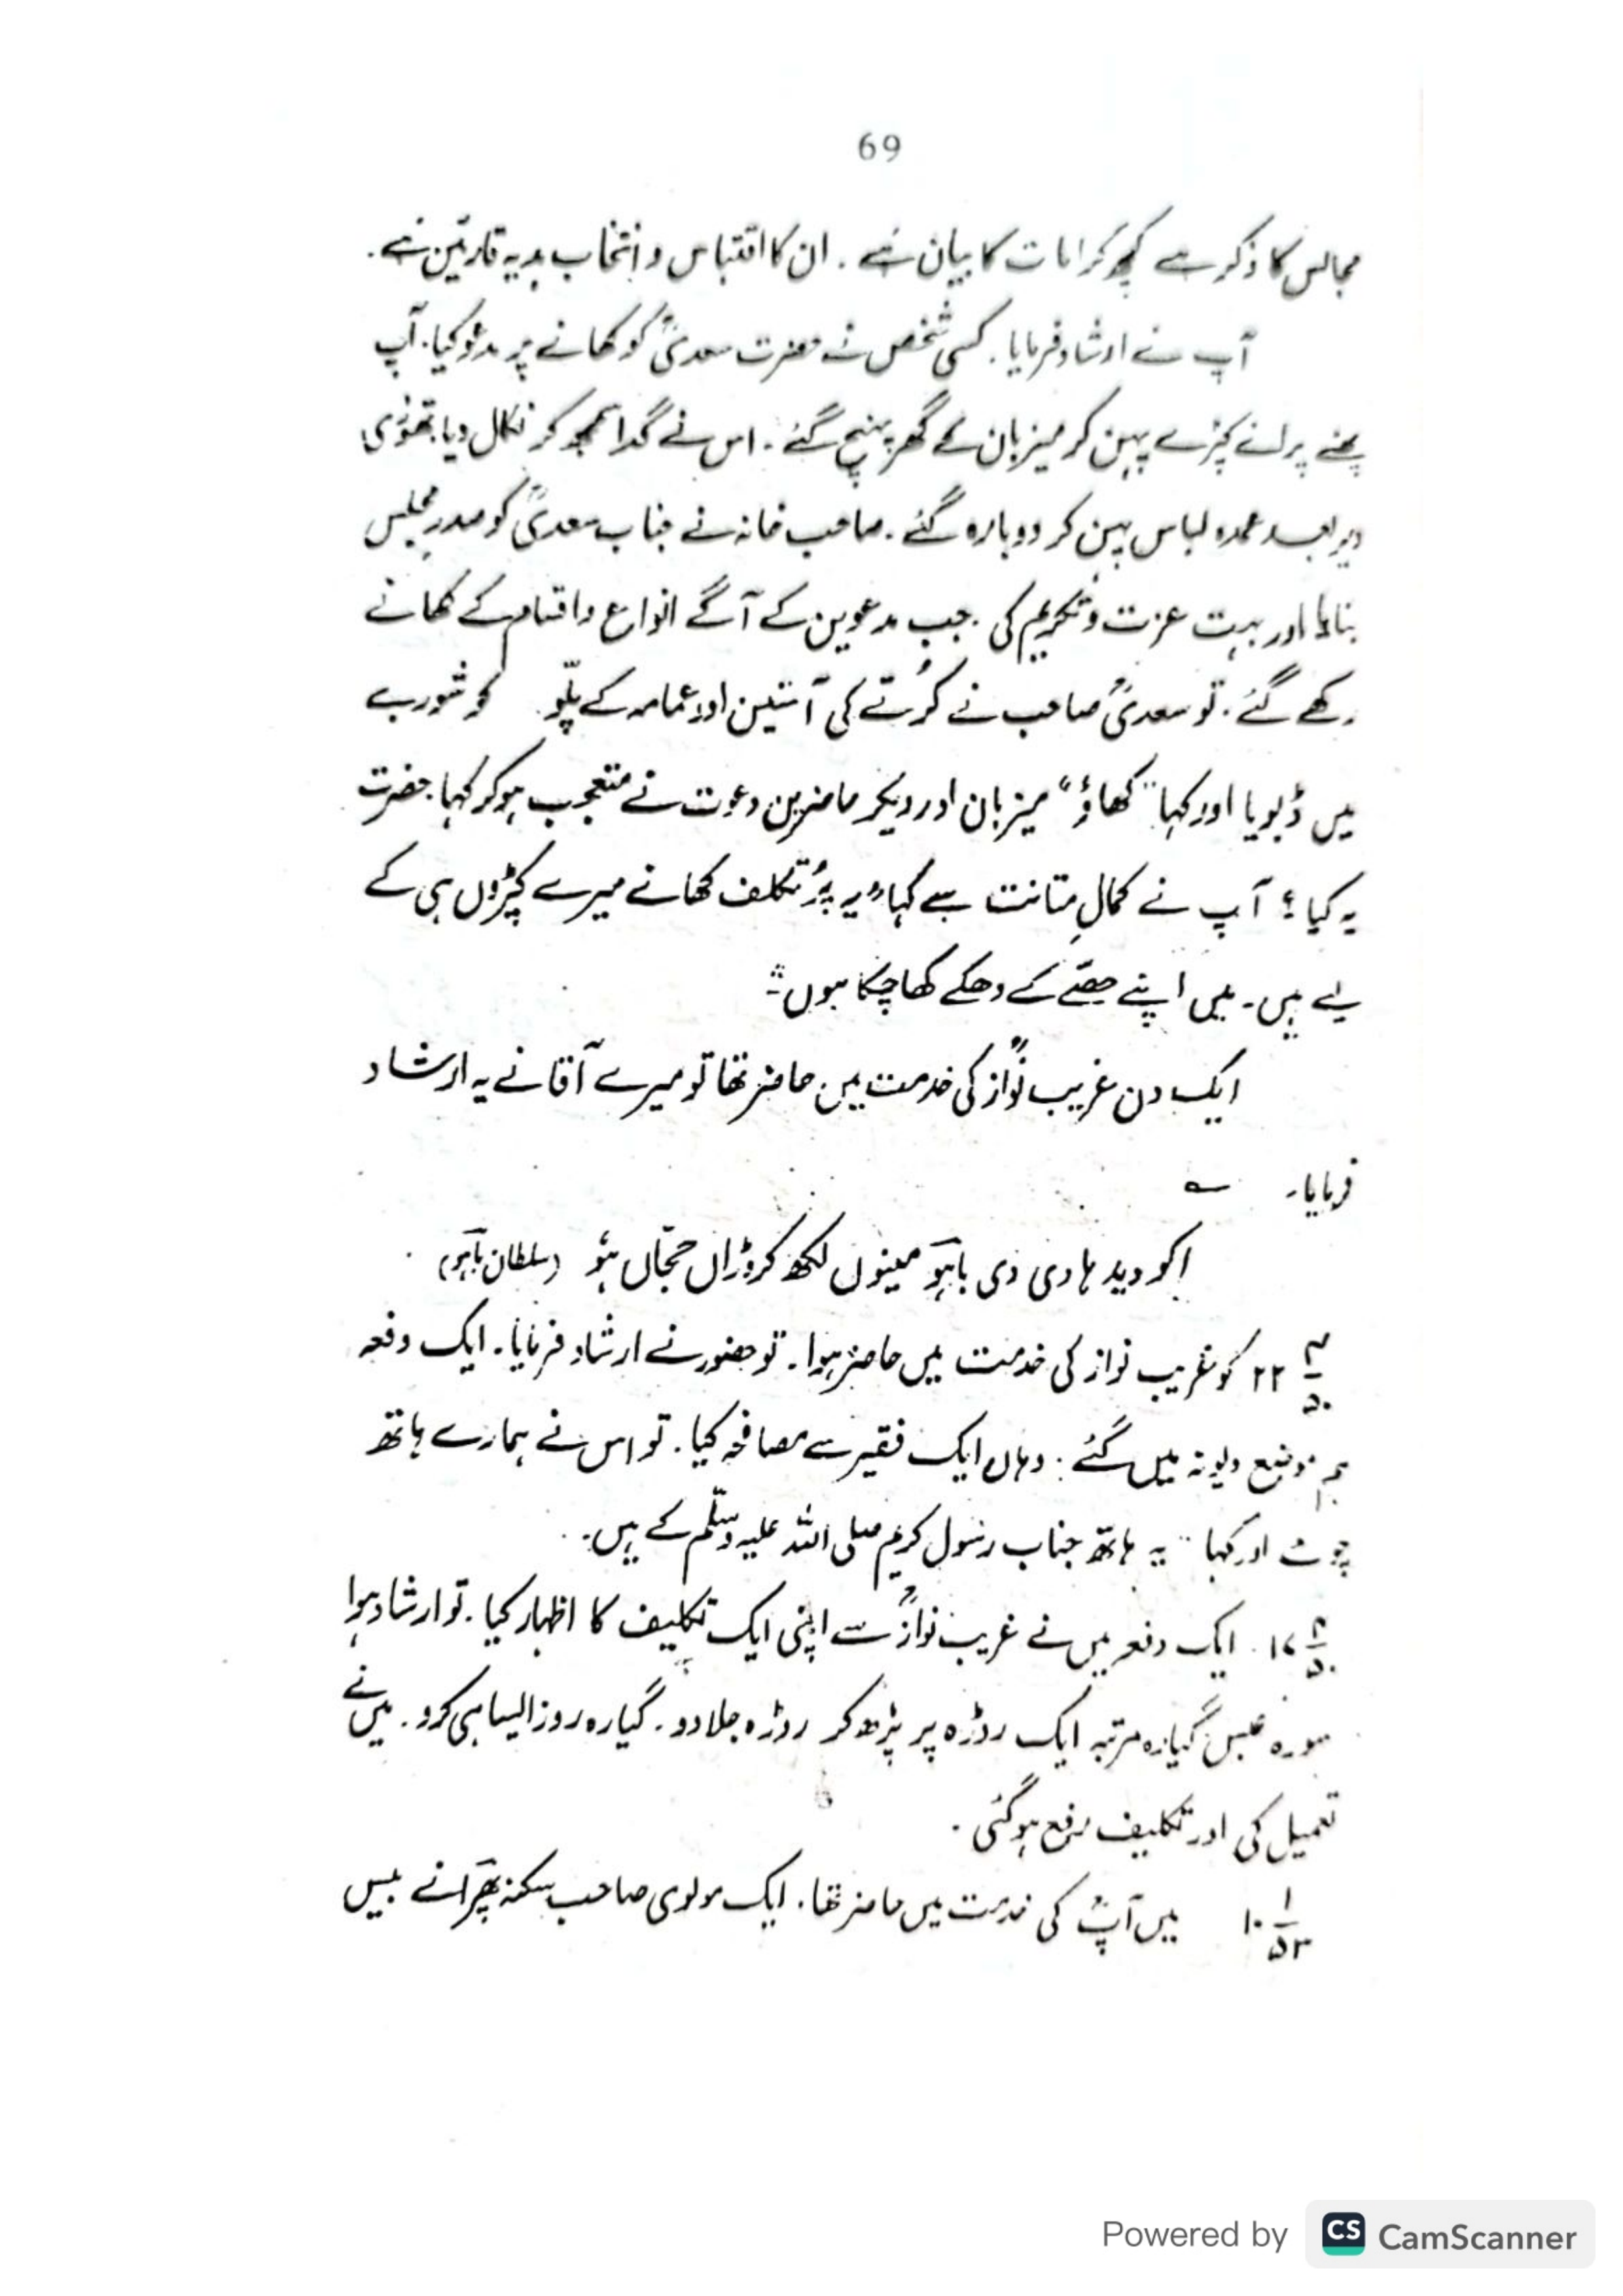 69
مجالس کا ذکر ہے کچھ کرامات کا بیان ہے۔ ان کا اقتباس و انتخاب ہدیہ قارئین ہے۔
آپ نے ارشاد فرمایا۔ کسی شخص نے حضرت سعدیؒ کو کھانے پر مدعو کیا۔ آپ
پھٹے پرانے کپڑے پہن کر میزبان کے گھر پہنچ گئے۔ اس نے گدا سمجھ کر نکال دیا۔ تھوڑی
دیر بعد عمدہ لباس پہن کر دوبارہ گئے۔ صاحب خانہ نے جناب سعدیؒ کو صدر مجلس
بنایا اور بہت عزت و تکریم کی۔ جب مدعوین کے آگے انواع و اقسام کے کھانے
رکھے گئے۔ تو سعدیؒ صاحب نے کُرتے کی آستین اور عمامہ کے پلّو کو شوربے
میں ڈبویا اور کہا "کھاؤ" میزبان اور دیگر حاضرین دعوت نے متعجب ہو کر کہا۔ حضرت
یہ کیا؟ آپ نے کمالِ متانت سے کہا "یہ پُر تکلف کھانے میرے کپڑوں ہی کے
لیے ہیں۔ میں اپنے حصّے کے دھکے کھا چکا ہوں"۔
ایک دن غریب نوازؒ کی خدمت میں حاضر تھا تو میرے آقا نے یہ ارشاد
فرمایا۔ ؎
اکو دید ہادی دی باہوؔ مینوں لکھ کروڑاں حجّاں ہُو (سلطان باہوؔ)
۲۲ ۳/۵۰ کو غریب نواز کی خدمت میں حاضر ہوا۔ تو حضور نے ارشاد فرمایا۔ ایک دفعہ
ہم موضع دیونہ میں گئے۔ وہاں ایک فقیر سے مصافحہ کیا۔ تو اس نے ہمارے ہاتھ
چومے اور کہا "یہ ہاتھ جناب رسول کریم صلی اللہ علیہ وسلّم کے ہیں۔
۱۷ ۴/۵۰۔ ایک دفعہ میں نے غریب نوازؒ سے اپنی ایک تکلیف کا اظہار کیا۔ تو ارشاد ہوا
سورہ عبس گیارہ مرتبہ ایک روڑہ پر پڑھ کر روڑہ جلا دو۔ گیارہ روز ایسا ہی کرو۔ میں نے
تعمیل کی اور تکلیف رفع ہوگئی۔
۱۰ ۱/۵۲ میں آپؒ کی خدمت میں حاضر تھا۔ ایک مولوی صاحب سکنہ نے بیس
Powered by CS CamScanner